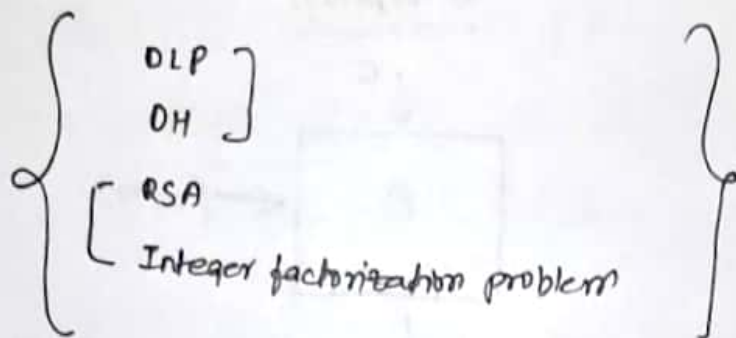 DLP
DH
RSA
Integer factorization problem